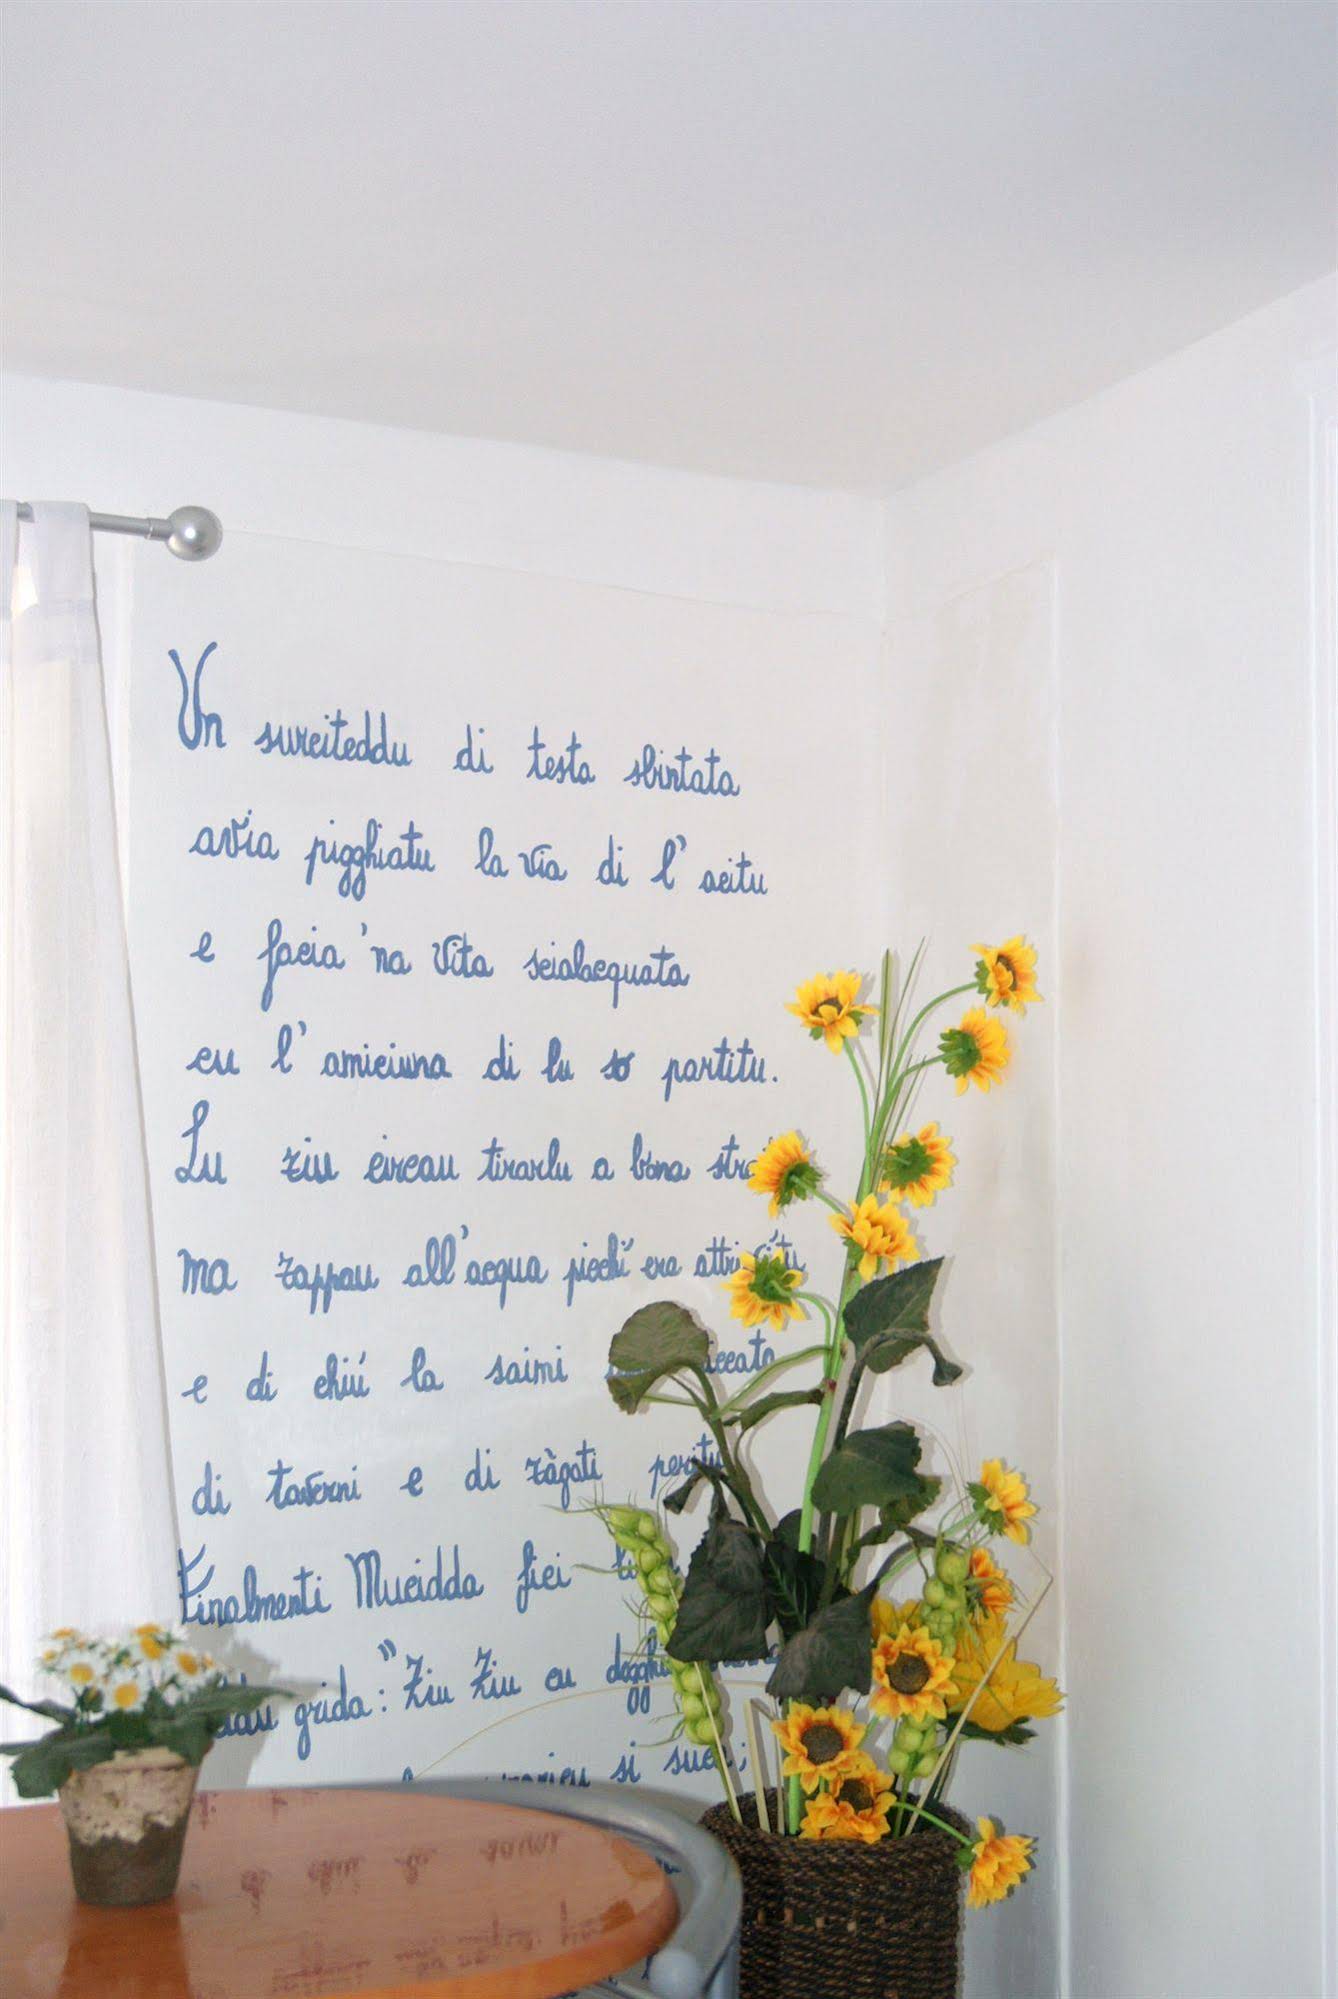 Un surciteddu di testa sbintata
avia pigghiatu la via di l'acitu
e facia 'na vita scialacquata
cu l'amiciuna di lu so partitu.
Lu ziu circau tirarlu a bona
ma zappau all'acqua picchí era
e di chiú la saimi
di taverni e di zàgati
Finalmenti Mucidda fici
grida: "Ziu Ziu cu
si suca;